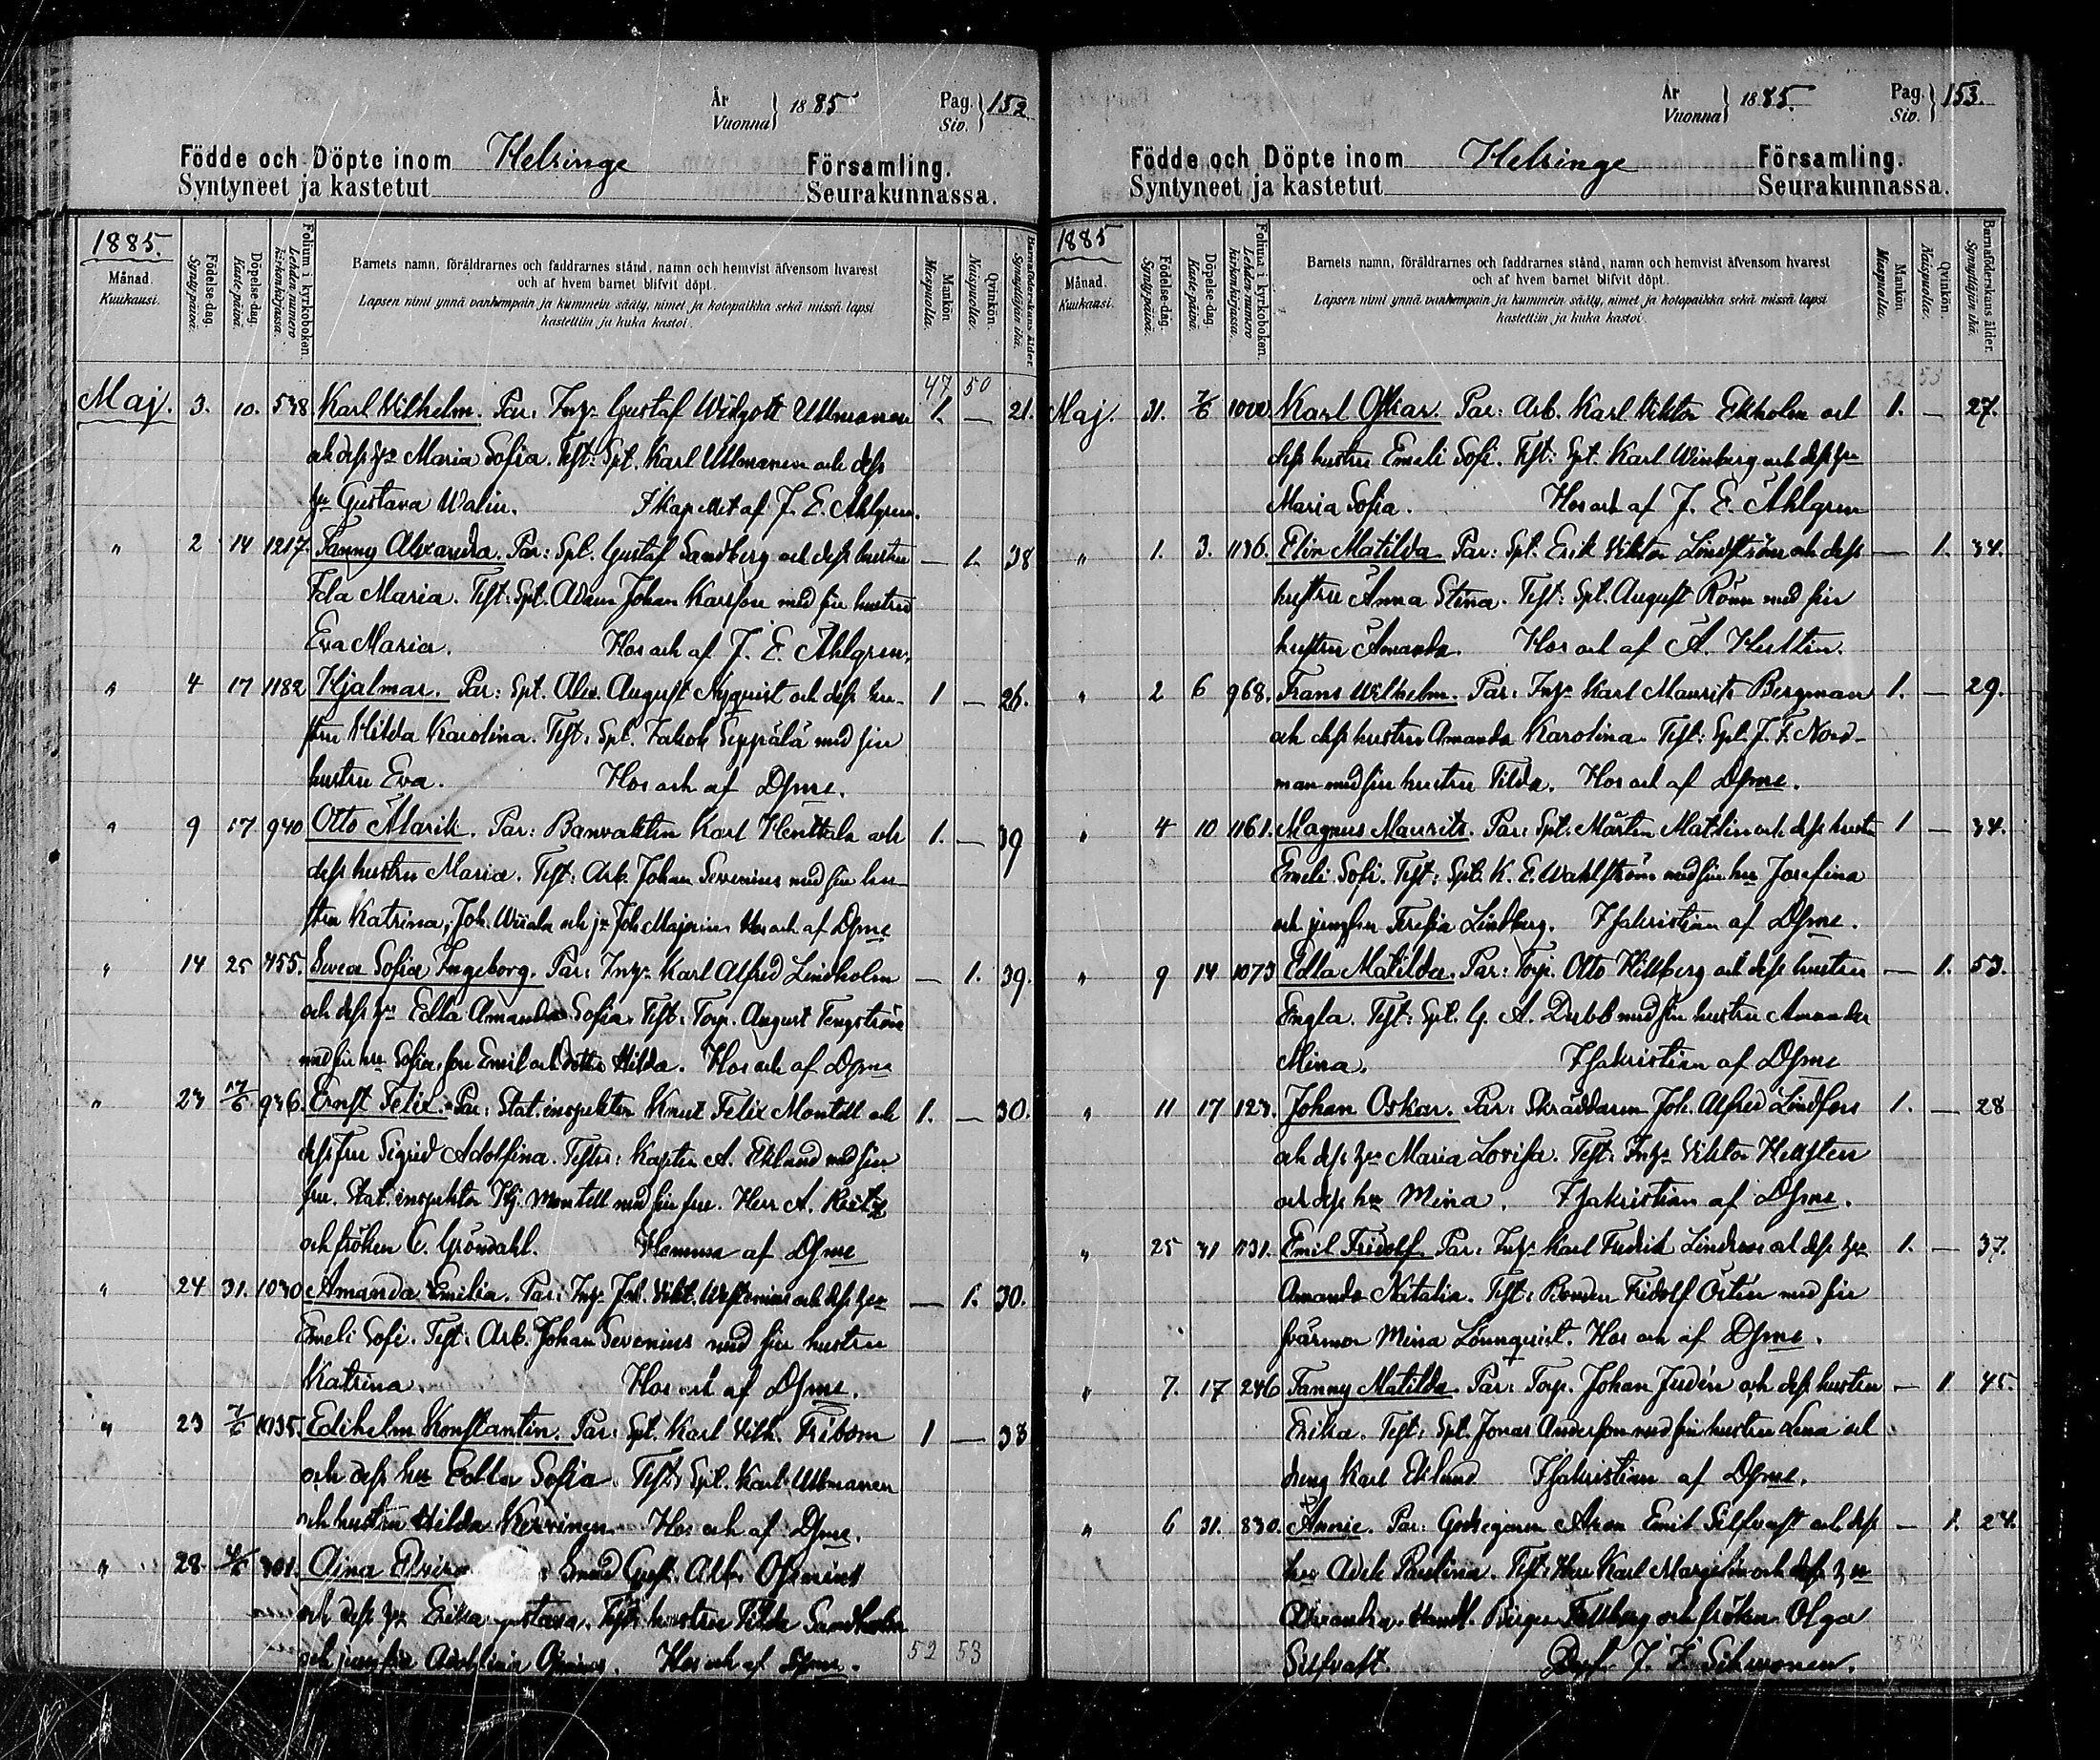 År Vuonna 1885 Pag. Siv. 152
Födde och Döpte inom Helsinge Församling.
Syntyneet ja kastetut Seurakunnassa.
1885.
Månad. Kuukausi.
Födelse-dag. Syntypäivä.
Döpelse-dag. Kastepäivä.
Folium i kyrkoboken. Lehden numero kirkonkirjassa.
Barnets namn, föräldrarnes och faddrarnes stånd, namn och hemvist äfvensom hvarest
och af hvem barnet blifvit döpt.
Lapsen nimi ynnä vanhempain ja kummein sääty, nimet ja kotopaikka sekä missä lapsi
kastettiin ja kuka kastoi.
Mankön. Miespuolia.
Qvinkön. Naispuolia.
Barnaföderskans ålder. Synnyttäjän ikä.
47 50
Maj. 3. 10. 538 Karl Vilhelm. Par: Inh. Gustaf Widgott Ullmanen 1. — 21.
och dess h:u Maria Sofia. Test: Spt. Karl Ullmanen och dess
h:u Gustava Walin. I kapellet af J. E. Ahlgren.
" 2 14 1217 Fanny Alexandra. Par: Spt. Gustaf Sandberg och dess hustru — 1. 38
Ida Maria. Test: Spt. Adam Johan Karlson med sin hustru
Eva Maria. Hos och af J. E. Ahlgren.
" 4 17 1182 Hjalmar. Par: Spt. Alex. August Nyquist och dess hu- 1 — 26.
stru Hilda Karolina. Test: Spt. Jakob Seppälä med sin
hustru Eva. Hos och af Dsme.
" 9 17 940 Otto Alarik. Par: Banvakten Karl Henttala och 1. — 39
dess hustru Maria. Test: Arb. Johan Sevenius med sin hu-
stru Katrina, Joh. och Joh. Majenius Hos och af Dsme
" 14 25 455. Svea Sofia Ingeborg. Par: Inh. Karl Alfred Lindholm — 1. 39.
och dess h:u Edla Amanda Sofia. Test: Torp. August Tengström
med sin h:u Sofia, son Emil och dotter Hilda. Hos och af Dsme
" 23 17/6 936. Ernst Felix. Par: Stat. inspektor Knut Felix Montell och 1. — 30.
dess fru Sigrid Adolfina. Testes: Kapten A. Eklund med sin
fru. Stat. inspektor Hj. Montell med sin fru. Herr A.
och fröken C. Gröndahl. Hemma af Dsme
" 24 31. 1030 Amanda Emilia. Par: Inh. Joh. Vikt. och dess h:u — 1. 30.
Emeli Sofi. Test: Arb. Johan Sevenius med sin hustru
Katrina. Hos och af Dsme.
" 23 7/6 1035. Edihelm Konstantin. Par: Spt. Karl Vilh. Fribom 1 — 33
och dess h:u Edla Sofia. Test: Spt. Karl Ullmanen
och hustru Hilda Hos och af Dsme.
" 28. Aina Smed Gust.
och dess h:u Erika Gustava. Test: hustru Tilda Sandholm
och jungfru Hos och af Dsme.
52 53
År Vuonna 1885. Pag. Siv. 153.
Födde och Döpte inom Helsinge Församling.
Syntyneet ja kastetut Seurakunnassa.
1885
Månad. Kuukausi.
Födelse-dag. Syntypäivä.
Döpelse-dag. Kastepäivä.
Folium i kyrkoboken. Lehden numero kirkonkirjassa.
Barnets namn, föräldrarnes och faddrarnes stånd, namn och hemvist äfvensom hvarest
och af hvem barnet blifvit döpt.
Lapsen nimi ynnä vanhempain ja kummein sääty, nimet ja kotopaikka sekä missä lapsi
kastettiin ja kuka kastoi.
Mankön. Miespuolia.
Qvinkön. Naispuolia.
Barnaföderskans ålder. Synnyttäjän ikä.
52 53
Maj. 31. 7/6 Karl Oskar. Par: Arb. Karl Viktor Ekholm och 1. — 27.
dess hustru Emeli Sofi. Test: Spt. Karl Winberg och dess h:u
Maria Sofia. Hos och af J. E. Ahlgren
" 1. 3. 1136. Elin Matilda. Par: Spt. Erik Viktor Lindström och dess — 1. 34.
hustru Anna Stina. Test: Spt. August Rönn med sin
hustru Amanda. Hos och af A.
" 2 6 968. Frans Wilhelm. Par: Inh. Karl Maurits Bergman 1. — 29.
och dess hustru Amanda Karolina. Test: Spt. J. F. Nord-
man med sin hustru Tilda. Hos och af Dsme.
" 4 10 1161. Magnus Maurits. Par: Spt. Mårten Matlin och dess hustru 1 — 34.
Emeli Sofi. Test: Spt. K. E. Wahlström med sin h:u Josefina
och jungfru Lindberg. I sakristian af Dsme.
" 9 14 1073 Edla Matilda. Par: Torp. Otto Hillberg och dess hustru — 1. 53.
Engla. Test: Spt. G. A. Dubb med sin hustru Amanda
Mina. I sakristian af Dsme
" 11 17 123. Johan Oskar. Par: Skräddaren Joh. Alfred Lindfors 1. — 28
och dess h:u Maria Lovisa. Test: Inh. Viktor Hellsten
och dess h:u Mina. I sakristian af Dsme.
" 25 31 1131. Emil Fridolf. Par: Inh. Karl Fredrik Lindroos och dess h:u 1. — 37.
Amanda Natalia. Test: Bonden Fridolf Östen med sin
svärmor Mina Lönnquist. Hos och af Dsme.
" 7. 17 246 Fanny Matilda. Par: Torp. Johan Judén och dess hustru — 1. 45.
Erika. Test: Spt. Jonas Anderson med sin hustru Lena och
dreng Karl Eklund. I sakristian af Dsme.
" 6 31. 830. Annie. Par: Godsegaren Aron Emil Silfvast och dess — 1. 24.
h:u Adele Paulina. Test: Herr Karl och dess h:u
Alexandra. Handl. Birger och fröken Olga
Silfvast. Past. J. F.